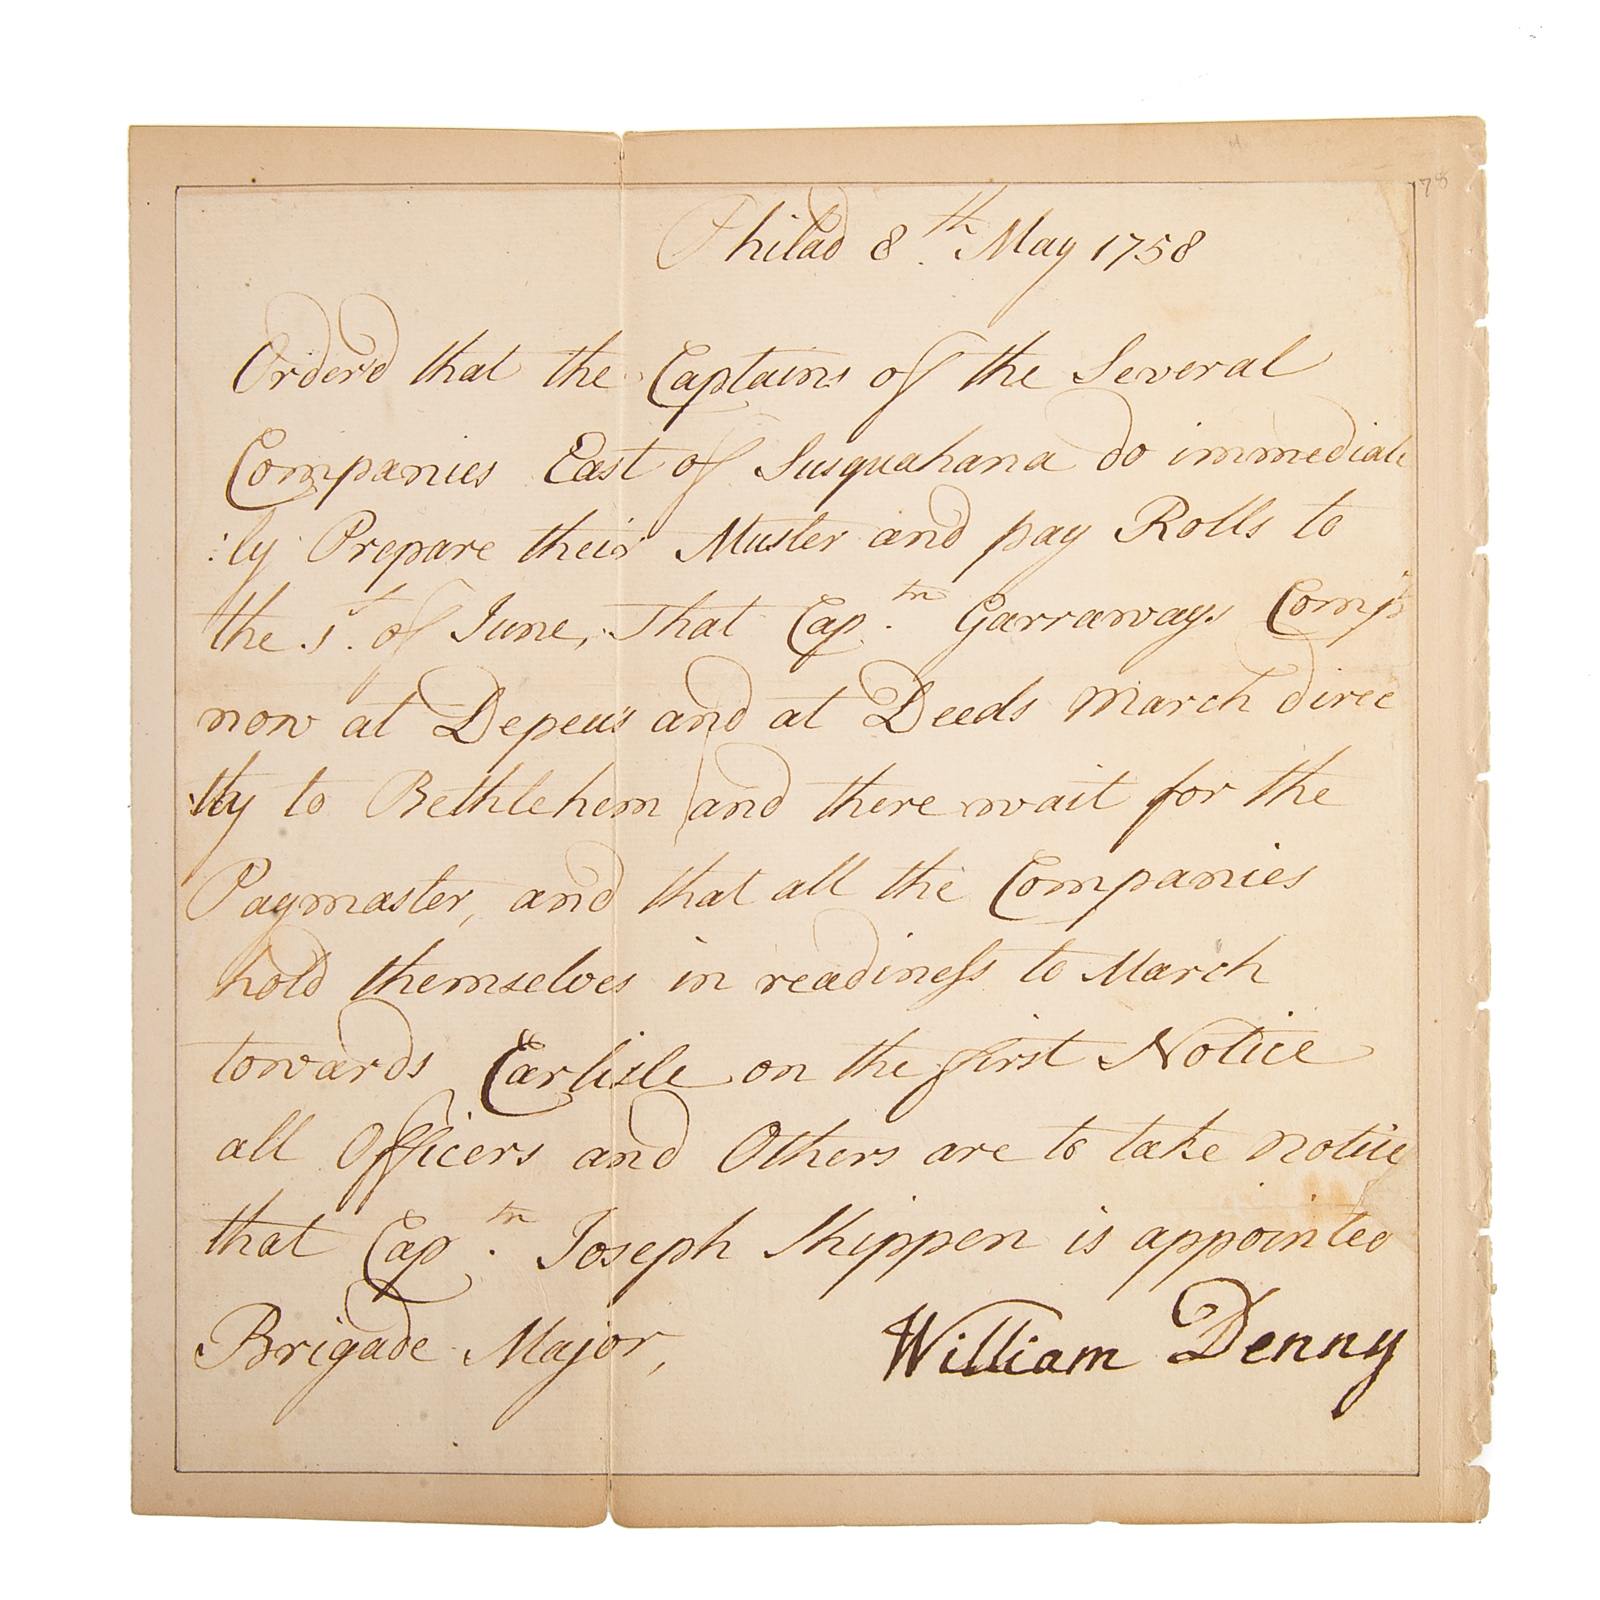 Philad 8.th May 1758
Order'd that the Captains of the Several
Companies East of Susquahana do immediate
:ly Prepare their Muster and pay Rolls to
the 1st. of June, That Cap.tn Garraways Comp
now at Depeu's and at Deeds March direc
tly to Bethlehem and there wait for the
Paymaster, and that all the Companies
hold themselves in readiness to March
towards Carlisle on the first Notice
all Officers and Others are to take notice
that Cap.tn Joseph Shippen is appointed
Brigade Major, William Denny